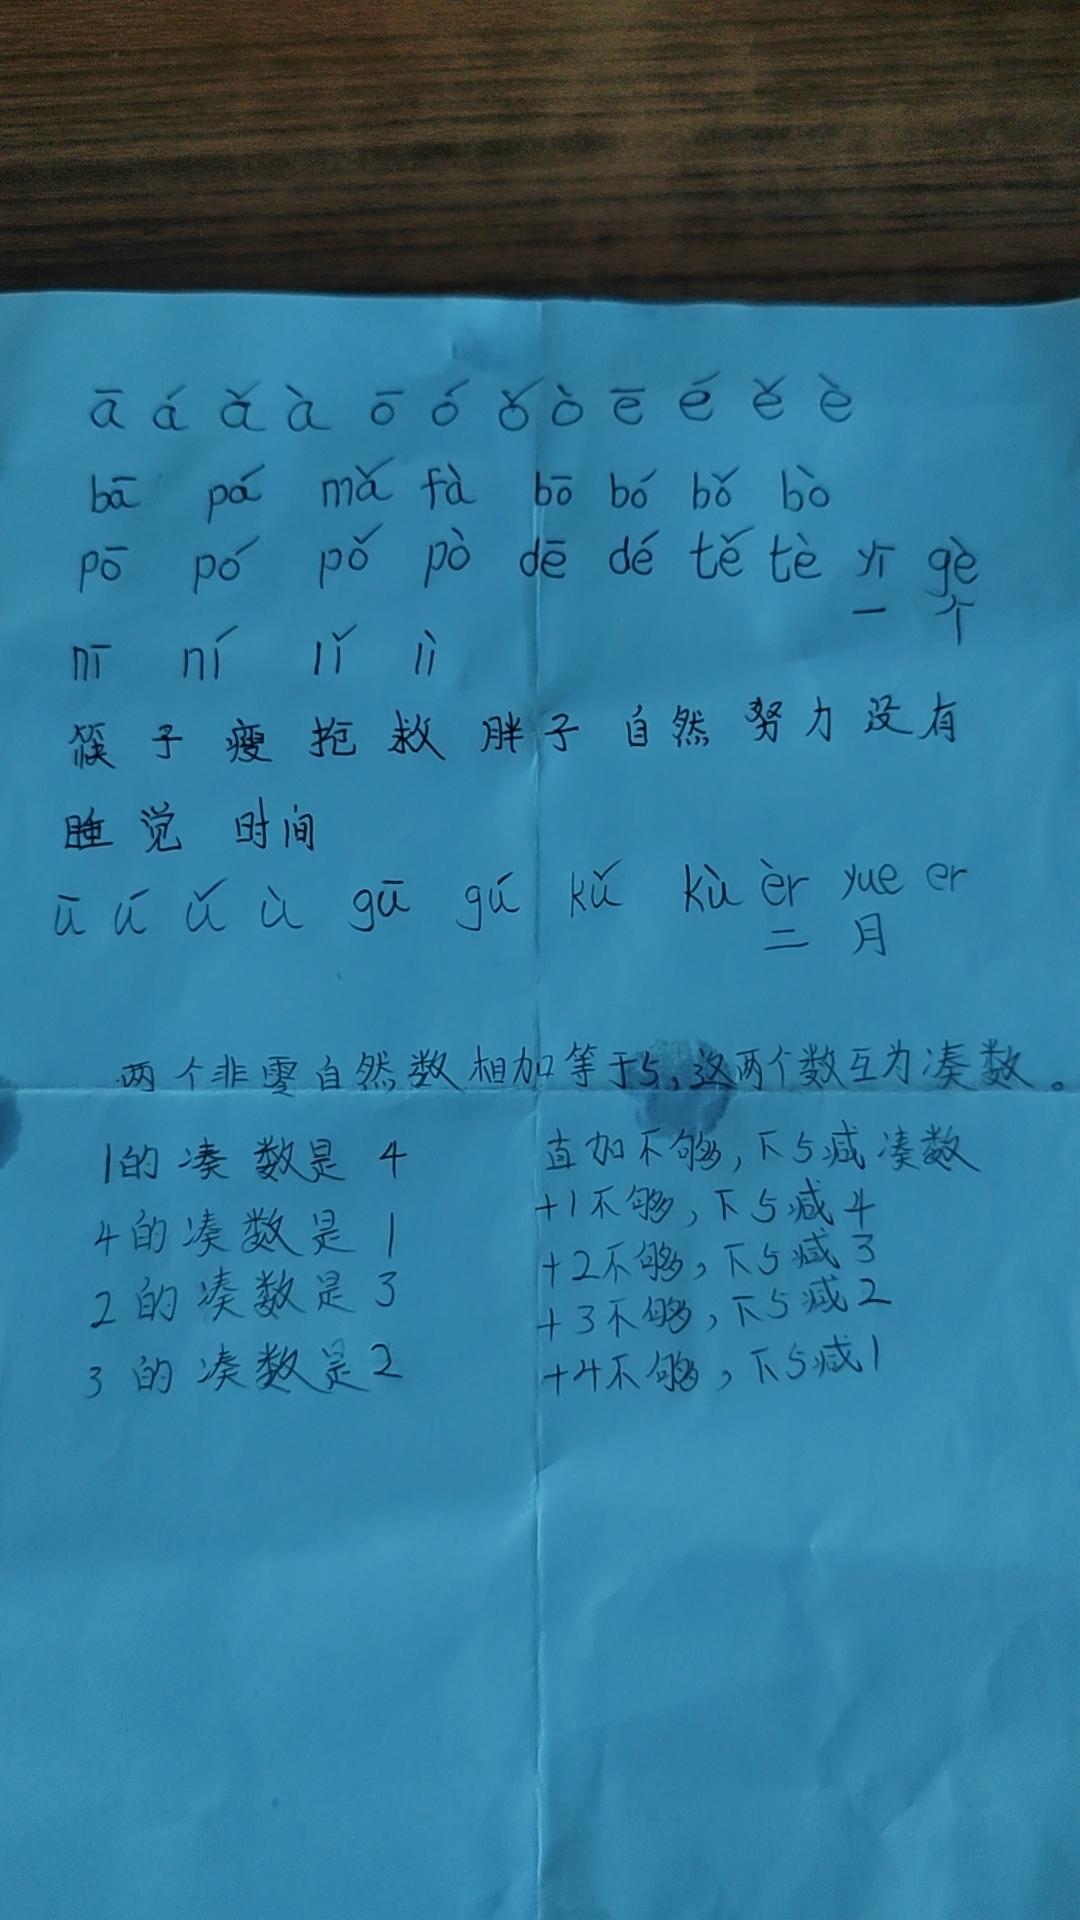 ā á ǎ à ō ó ǒ ò ē é ě è
bā pá mǎ fà bō bó bǒ bò
pō pó pǒ pò dē dé tě tè yī gè
一 个
nī ní lǐ lì
筷 子 瘦 抱 救 胖 子 自 然 努 力 没 有
睡 觉 时 间
ū ú ǔ ù gū gú kǔ kù èr yue er
二 月
两个非零自然数相加等于5,这两个数互为凑数。
1的凑数是4
4的凑数是1
2的凑数是3
3的凑数是2
直加不够,下5减凑数
+1不够,下5减4
+2不够,下5减3
+3不够,下5减2
+4不够,下5减1